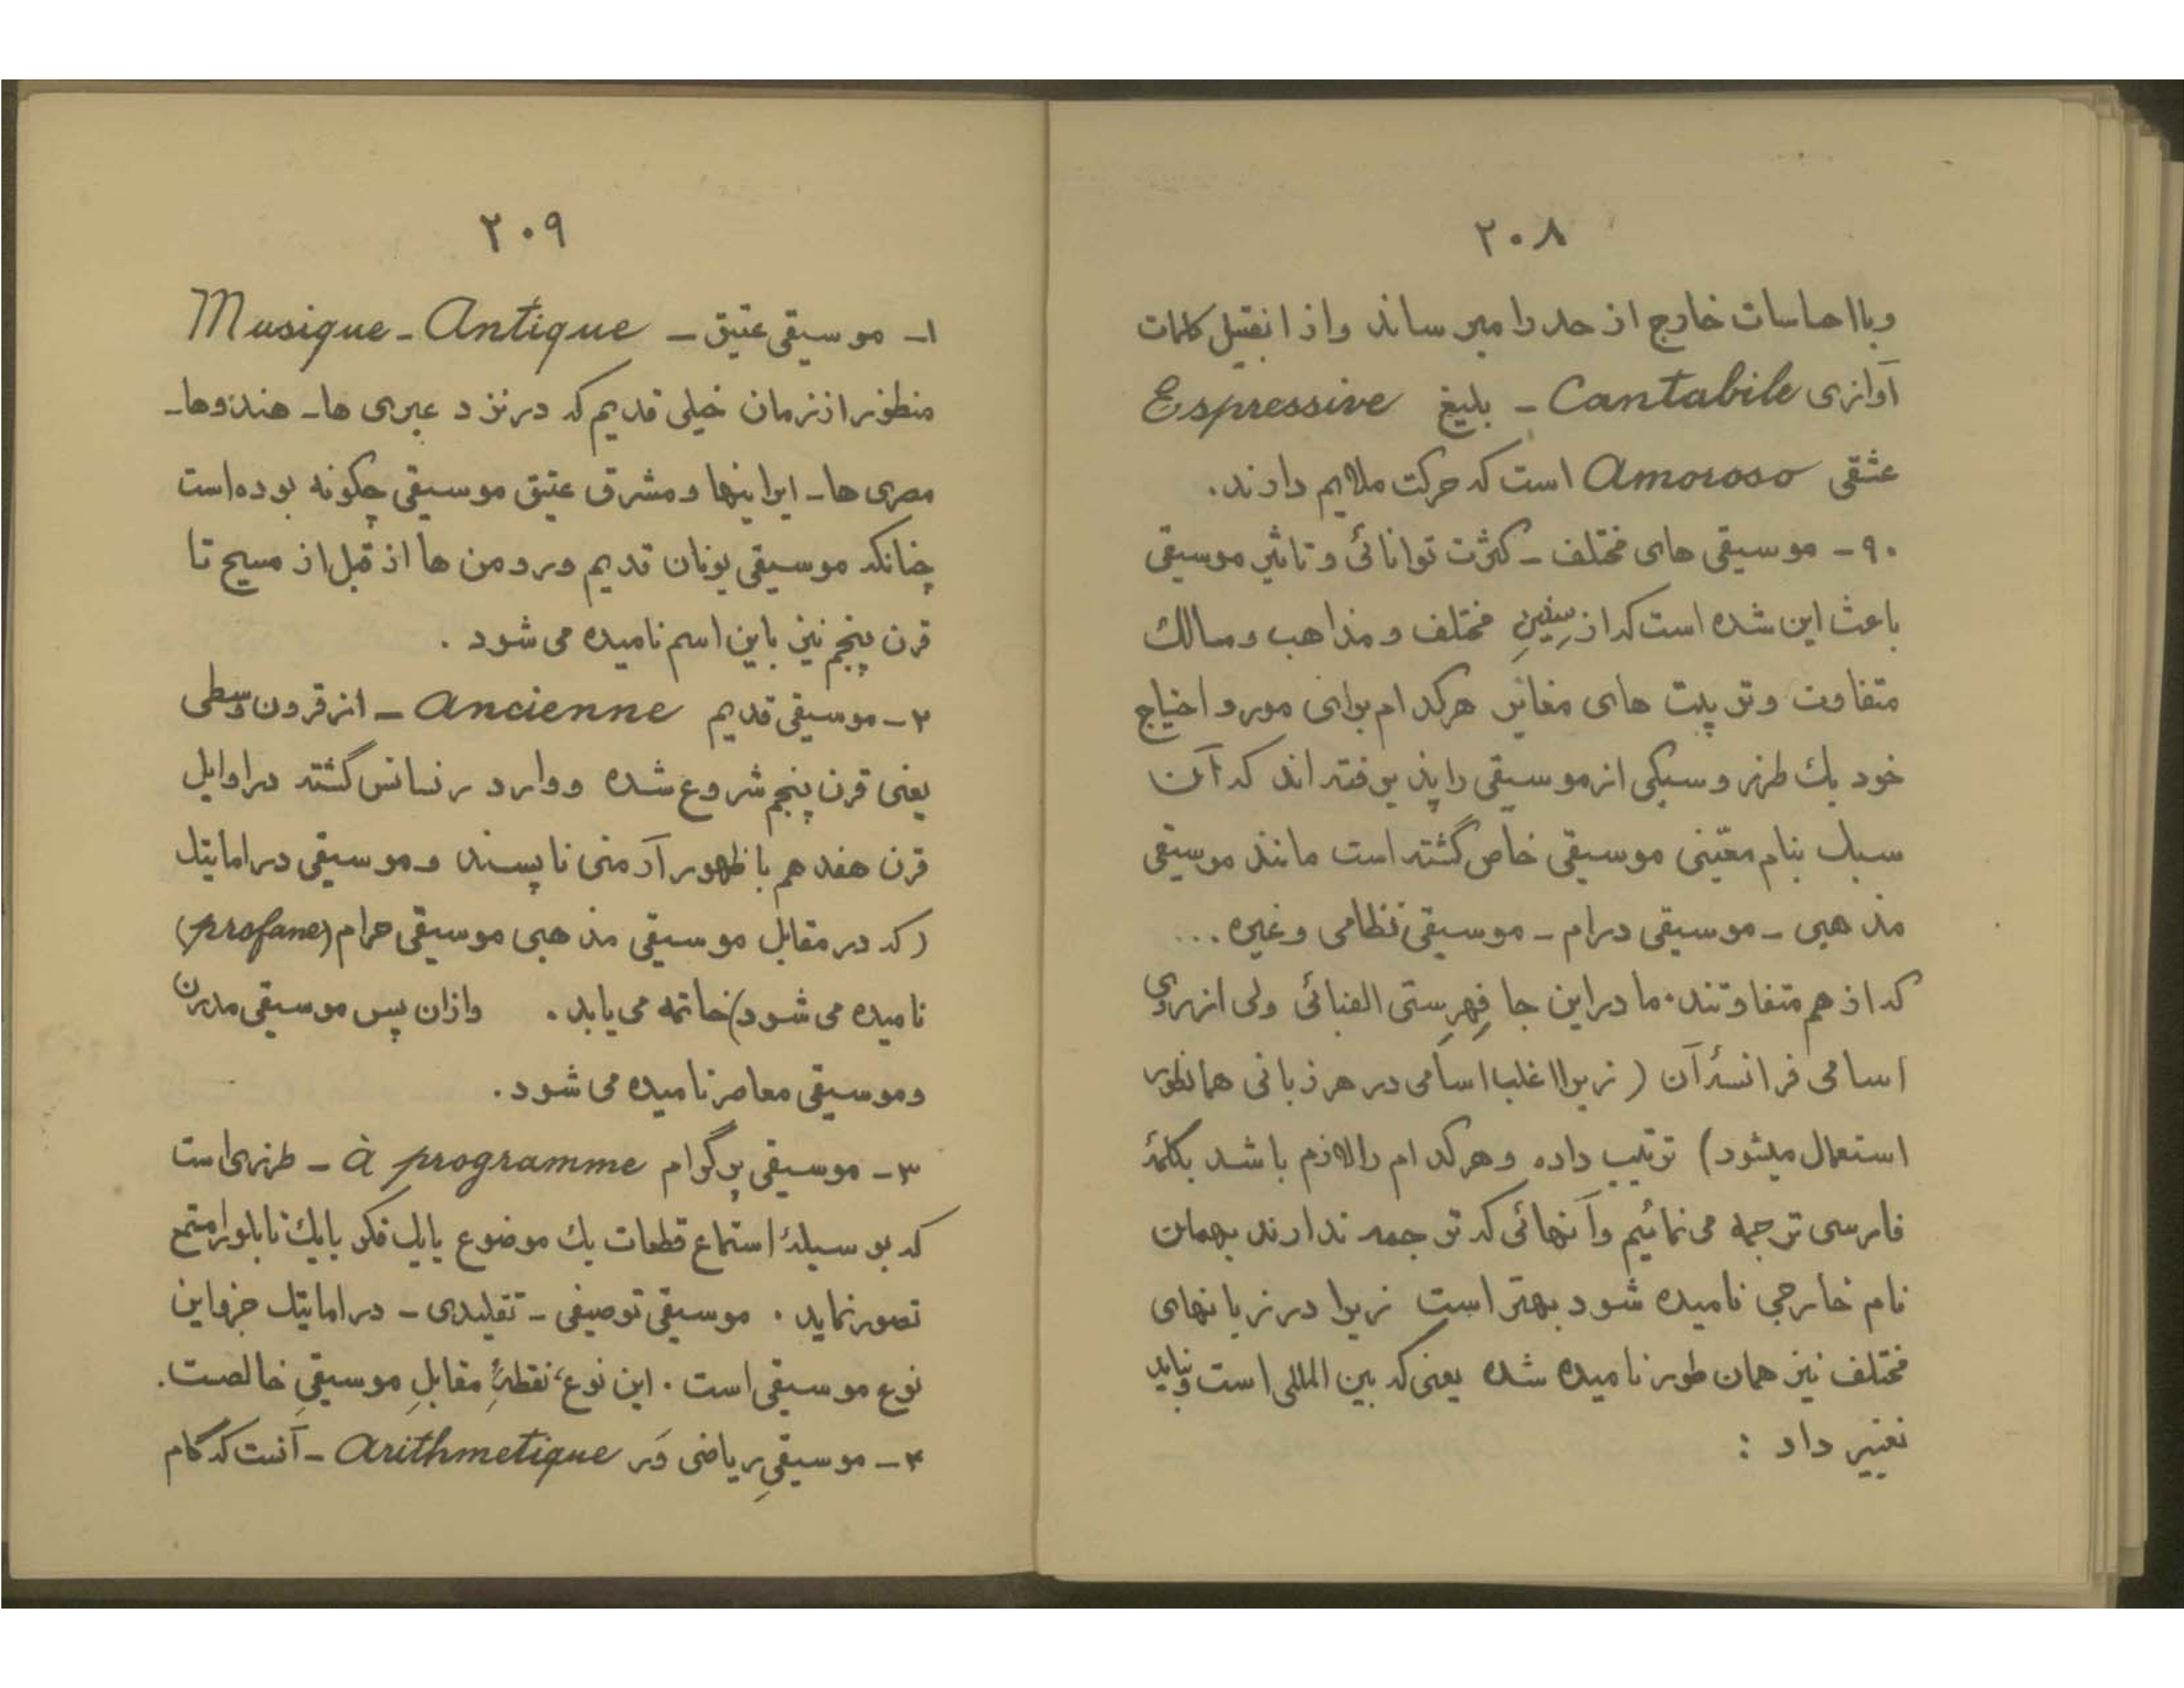 ۲۰۸
و یا احساسات خارج از حد را میرساند و از انقبیل کلمات
آوازی Cantabile - بلیغ Espressive
عشقی Amoroso است که حرکت ملایم دارند.
۹۰ - موسیقی های مختلف - کثرت توانائی و تاثیر موسیقی
باعث این شده است که از سنین مختلف و مذاهب و مسالک
متفاوت و تربیت های مغایر هرکدام برای مورد احتیاج
خود یك طرز و سبکی از موسیقی را پذیرفته اند که آن
سبك بنام معیّنی موسیقی خاصّ گشته است مانند موسیقی
مذهبی - موسیقی درام - موسیقی نظامی و غیره ...
که از هم متفاوتند. ما در این جا فِهرِستی الفبائی ولی از روی
اسامی فرانسهٔ آن (زیرا اغلب اسامی در هر زبانی همانطور
استعمال میشود) ترتیب داده و هرکدام را لازم باشد بکلمهٔ
فارسی ترجمه می نمائیم و آنهائی که ترجمه ندارند بهمان
نام خارجی نامیده شود بهتر است زیرا در زبانهای
مختلف نیز همان طور نامیده شده یعنی که بین المللی است و نباید
تغییر داد :
۲۰۹
۱- موسیقی عتیق - Musique - Antique
منظور از زمان خیلی قدیم که در نزد عبری ها - هندوها -
مصری ها - ایرانیها و مشرق عتیق موسیقی چگونه بوده است
چنانکه موسیقی یونان قدیم و رومن ها از قبل از مسیح تا
قرن پنجم نیز باین اسم نامیده می شود .
۲ - موسیقی قدیم Ancienne - از قرون وسطی
یعنی قرن پنجم شروع شده و وارد رنسانس گشته در اوایل
قرن هفدهم با ظهور آرمنی ناپسند و موسیقی دراماتیك
(که در مقابل موسیقی مذهبی موسیقی حرام (profane)
نامیده می شود) خاتمه می یابد . وازان پس موسیقی مدرن
و موسیقی معاصر نامیده می شود .
۳ - موسیقی پرگرام à programme - طرزی است
که بوسیلهٔ استماع قطعات یك موضوع یا یك فکر یا یك تابلو را مستمع
تصور نماید . موسیقی توصیفی - تقلیدی - دراماتیك جزو این
نوع موسیقی است . این نوع، نقطهٔ مقابلِ موسیقیِ خالصت .
۴ - موسیقیِ ریاضی وَر Arithmetique - آنست که گام